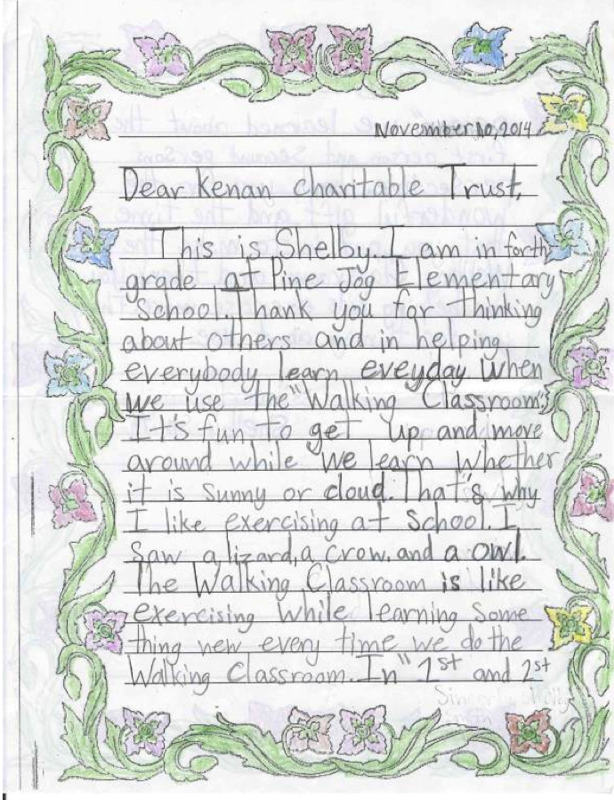 November 10, 2014
Dear Kenan Charitable Trust,
This is Shelby. I am in forth
grade at Pine Jog Elementary
School. Thank you for thinking
about others and in helping
everybody learn eveyday when
we use the "Walking Classroom".
It's fun to get up and move
around while we learn whether
it is sunny or cloud. That's why
I like exercising at School. I
saw a lizard, a crow, and a owl.
The Walking Classroom is like
exercising while learning some
thing new every time we do the
Walking Classroom. In "1st and 2st